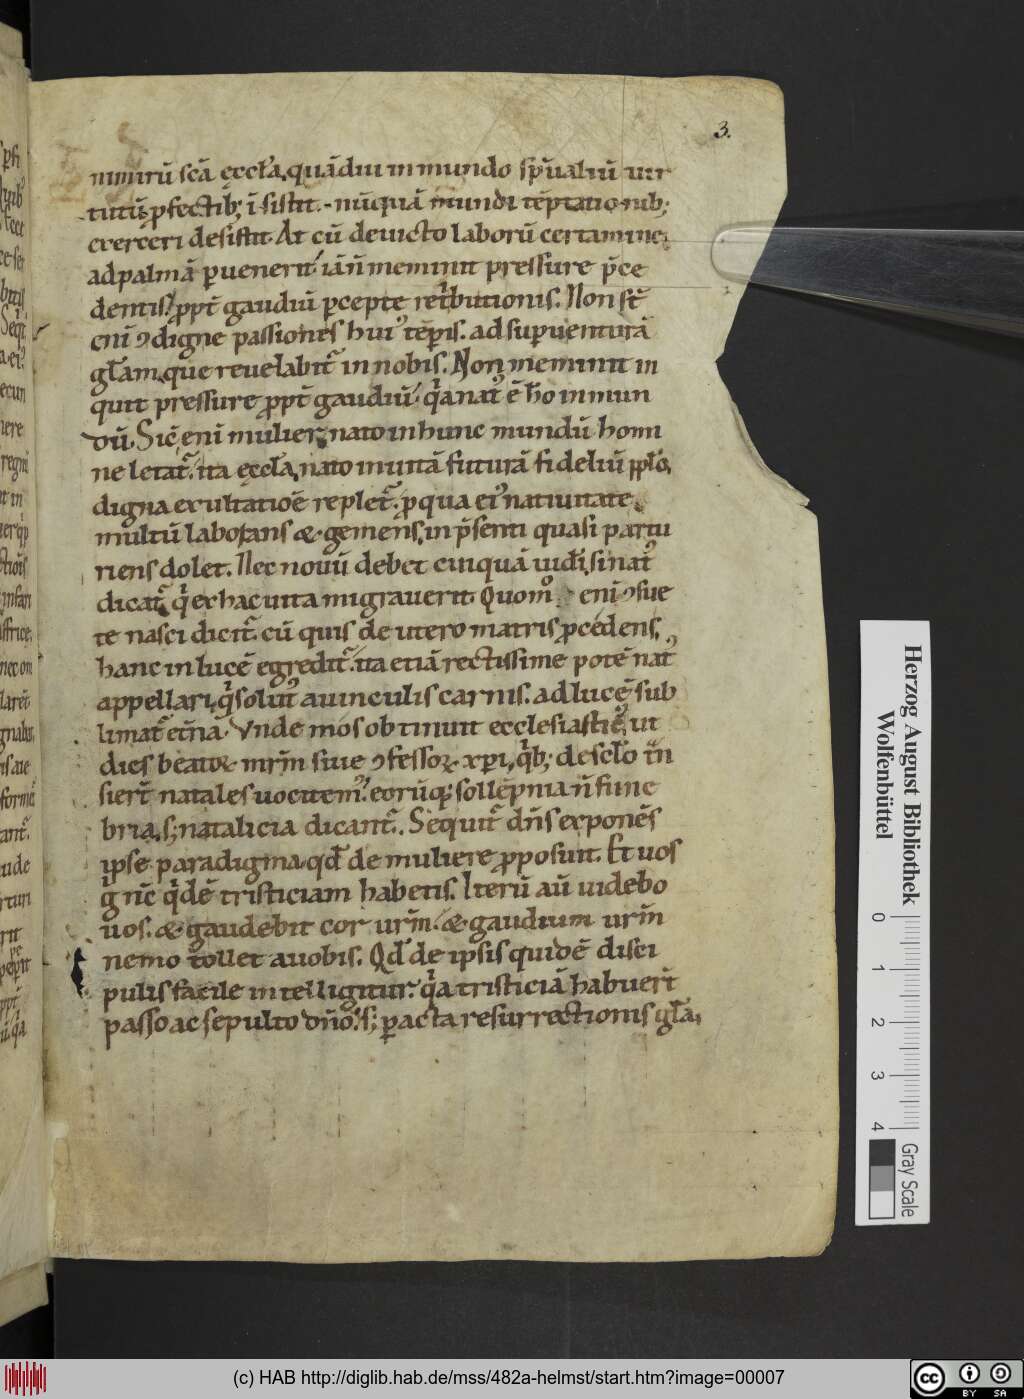 3.
nimirū scā ęccła, quādiu in mundo sp̄ualiū uir
tutū pfectib; īsistit. nūquā mundi tēptationib;
exerceri desistit. At cū deuicto laborū certamine,
ad palmā puenerit, iā n̄ meminit pressure p̄ce
dentis, ppt̄ gaudiū pcepte ret̓butionis. Non sn̄t
eni ꝯdigne passiones hui᾽ tēpis. ad supuenturā
głam, que reuelabit᷑ in nobis. Non meminit in
quit pressure ppt̄ gaudiū, q̓a nat᾽ ē hō in mun
dū. Sic̄ eni mulier, nato in hunc mundū homi
ne letat᷑. ita ęccła, nato in uitā futurā fideliū pplo,
digna exultatiōe replet᷑. p qua ei᾽ natiuitate
multū laborans & gemens, in p̄senti quasi partu
riens dolet. Nec nouū debet cuiquā uidi, si nat᾽
dicat᷑ q̓ ex hac uita migrauerit. Quom᾽ eni ꝯsue
te nasci dicit᷑. cū quis de utero matris pcedens,
hanc in lucē egredit᷑. ita etiā rectissime potē nat᾽
appellari, q̓ solut᾽ a uinculis carnis. ad lucē sub
limat᷑ etn̄a. Vnde mos obtinuit ecclesiastic᾽, ut
dies beatoꝝ mr̄m siue ꝯfessoꝝ xpi, q̓b; de scło tn̄
siert̄ natales uocitem᾽. eorūq; sollēpnia n̄ fune
bria, s; natalicia dicant᷑. Sequit᷑ dn̄s exponēs
ipse paradigma qd̄ de muliere pposuit. Et uos
g̓ nc̄ q̓dē tristiciam habetis. Iterū aū uidebo
uos. & gaudebit cor urm̄. & gaudium urm̄
nemo tollet a uobis. Qd̄ de ipsis quidē disci
pulis facile intelligitur. q̓a tristiciā habuert̄
passo ac sepulto dn̄o. s; pacta resurrectionis głā,
Herzog August Bibliothek
Wolfenbüttel
0 1 2 3 4
Gray Scale
(c) HAB http://diglib.hab.de/mss/482a-helmst/start.htm?image=00007
cc BY SA